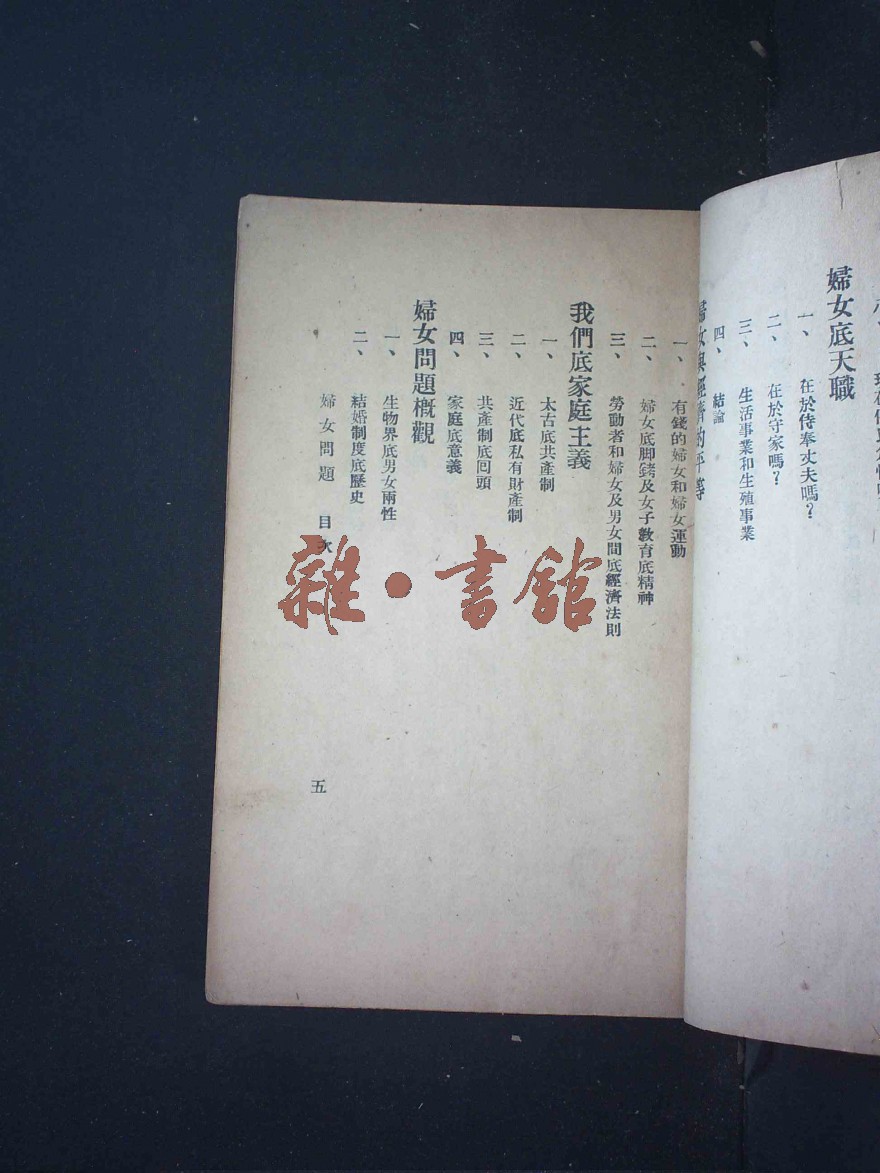 婦女底天職
一、 在於侍奉丈夫嗎？
二、 在於守家嗎？
三、 生活事業和生殖事業
四、 結論
婦女與經濟的平等
一、 有錢的婦女和婦女運動
二、 婦女底脚鐐及女子教育底精神
三、 勞動者和婦女及男女間底經濟法則
我們底家庭主義
一、 太古底共產制
二、 近代底私有財產制
三、 共產制底囘頭
四、 家庭底意義
婦女問題概觀
一、 生物界底男女兩性
二、 結婚制度底歷史
婦女問題 目次
五
雜·書舘